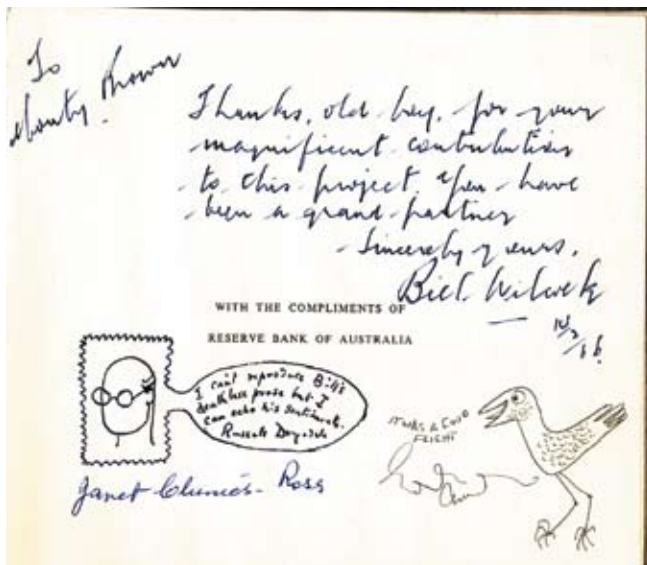 To
Monty
Thanks, old boy, for your
magnificent contribution
to this project. You have
been a grand partner
Sincerely yours,
Bill
WITH THE COMPLIMENTS OF
RESERVE BANK OF AUSTRALIA
I can't reproduce Bill's
deathless prose but I
can echo his sentiments.
Russell Drysdale
IT WAS A GOOD
FLIGHT
Janet Clunies-Ross